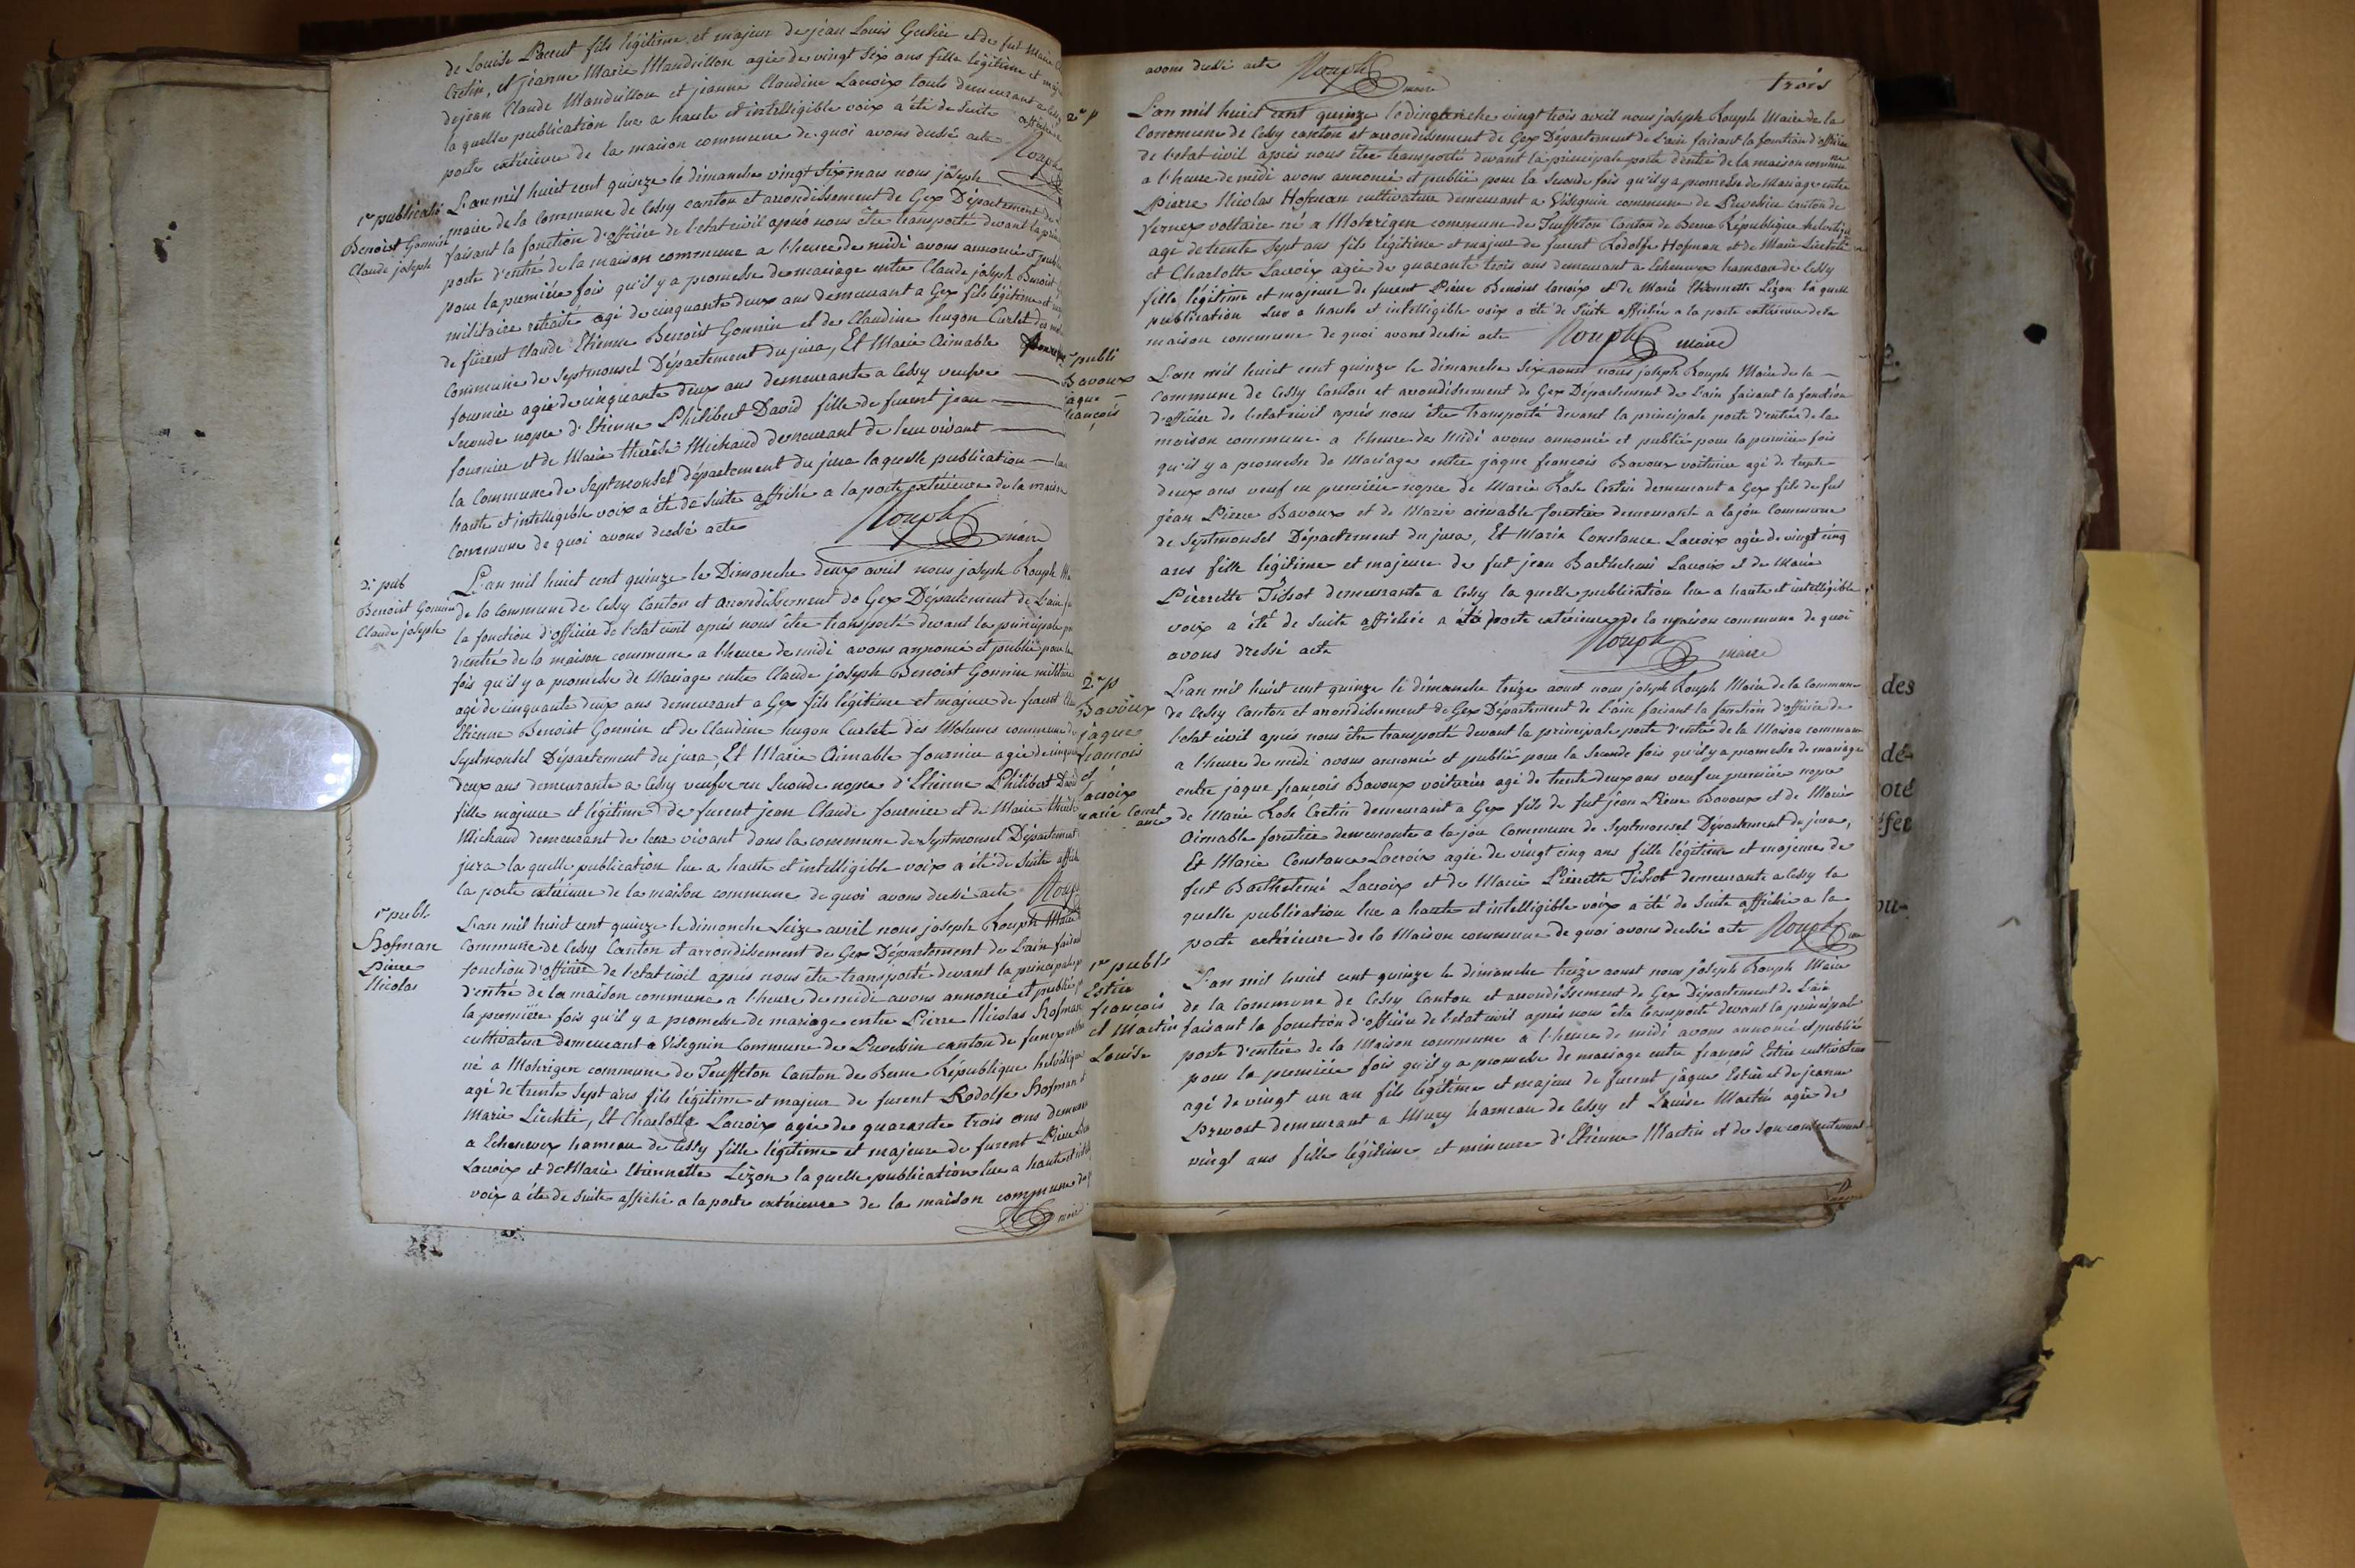 de Louise Parent fils légitime et majeur de jean Louis et de fut Marie
Cretin, et jeanne Marie Manduillon agée de vingt six ans fille légitime et
de jean Claude Manduillon et jeanne Claudine Lacroix touts demeurant a Cessy
la quelle publication lue a haute et intelligible voix a été de suite affichée
porte extérieure de la maison commune de quoi avons dressé acte Rouph
1re publicatio
Benoist Gonnin
Claude joseph
L'an mil huict cent quinze le dimanche vingt six mars nous joseph
maire de la Commune de Cessy canton et arrondissement de Gex Département de
faisant la fonction d'officier de l'etat civil après nous être transporté devant la
porte d'entré de la maison commune a l'heure de midi avons annoncé et publié
pour la première fois qu'il y a promesse de mariage entre Claude joseph Benoist
militaire retraité agé de cinquante deux ans demeurant a Gex fils légitime et
de fûrent Claude Etienne Benoist Gonnin et de Claudine hugon Curlet des
Commune de Septmonsel Département du jura, Et Marie Aimable
fournier agée de cinquante deux ans demeurante a Cessy veufve
seconde nopce d'Etienne Philibert David fille de furent jean
fournier et de Marie thérèse Michaud demeurant de leur vivant
la Commune de Septmonsel département du jura la quelle publication
haute et intelligible voix a été de suite affiché a la porte extérieure de la maison
Commune de quoi avons dressé acte Rouph maire
2e pub
Benoist Gonnin
Claude joseph
L'an mil huict cent quinze le Dimanche deux avril nous joseph Rouph
de la Commune de Cessy Canton et arrondissement de Gex Département de L'ain
la fonction d'officier de l'etat civil après nous être transporté devant la principale
d'entrée de la maison commune a l'heure de midi avons annoncé et publié pour la
fois qu'il y a promesse de Mariage entre Claude joseph Benoist Gonnin militaire
agé de cinquante deux ans demeurant a Gex fils légitime et majeur de furent
Etienne Benoist Gonnin et de Claudine hugon Curlet des Molunes commune de
Septmonsel Département du jura, Et Marie Aimable fournier agée de cinquante
deux ans demeurante a Cessy veufve en seconde nopce d'Etienne Philibert David
fille majeure et légitime de furent jean Claude fournier et de Marie thérèse
Michaud demeurant de leur vivant dans la commune de Septmonsel Département
jura la quelle publication lue a haute et intelligible voix a été de suite affiché
la porte extérieure de la maison commune de quoi avons dressé acte Rouph
1re publi
Hofman
Pierre
Nicolas
L'an mil huict cent quinze le dimanche seize avril nous joseph Rouph Maire
Commune de Cessy Canton et arrondissement de Gex Département de L'ain faisant
fonction d'officier de l'etat civil après nous être transporté devant la principale
d'entré de la maison commune a l'heure de midi avons annoncé et publié
la première fois qu'il y a promesse de mariage entre Pierre Nicolas Hofman
cultivateur demeurant a Visegnin commune de Prevessin canton de fernex
né a Mohrigen commune de Teuffeton Canton de Berne République helvétique
agé de trente sept ans fils légitime et majeur de furent Rodolfe Hofman
Marie Liechti, Et Charlotte Lacroix agée de quarante trois ans demeurant
a Echenevex hameau de Cessy fille légitime et majeure de furent Pierre
Lacroix et de Marie Etiennette Lizon la quelle publication lue a haute et
voix a été de suite affiché a la porte extérieure de la maison commune
maire
avons dressé acte Rouph maire
trois
2e p
L'an mil huict cent quinze le dimanche vingt trois avril nous joseph Rouph Maire de la
Commune de Cessy canton et arrondissement de Gex Département de L'ain faisant la fonction d'officier
de l'etat civil après nous être transporté devant la principale porte d'entré de la maison commune
a l'heure de midi avons annoncé et publié pour la seconde fois qu'il y a promesse de Mariage entre
Pierre Nicolas Hofman cultivateur demeurant a Visegnin commune de Prevessin canton de
fernex voltaire né a Mohrigen commune de Teuffeton Canton de Berne République helvétique
agé de trente sept ans fils légitime et majeur de furent Rodolfe Hofman et de Marie Liechti
et Charlotte Lacroix agée de quarante trois ans demeurant a Echenevex hameau de Cessy
fille légitime et majeure de furent Pierre Benoist Lacroix et de Marie Etiennette Lizon la quelle
publication lue a haute et intelligible voix a été de suite affichée a la porte extérieure de la
maison commune de quoi avons dressé acte Rouph maire
publi
Bavoux
jaque
françois
L'an mil huict cent quinze le dimanche six aoust nous joseph Rouph Maire de la
Commune de Cessy Canton et arrondissement de Gex Département de L'ain faisant la fonction
d'officier de l'etat civil après nous être transporté devant la principale porte d'entrée de la
maison commune a l'heure de Midi avons annoncé et publié pour la première fois
qu'il y a promesse de Mariage entre jaque françois Bavoux voiturier agé de trente
deux ans veuf en première nopce de Marie Rose Cretin demeurant a Gex fils de fut
jean Pierre Bavoux et de Marie aimable forestier demeurante a lajou Commune
de Septmonsel Département du jura, Et Marie Constance Lacroix agée de vingt cinq
ans fille légitime et majeure de fut jean Barthelemi Lacroix et de Marie
Pierrette Tissot demeurante a Cessy la quelle publication lue a haute et intelligible
voix a été de suite affichée a la porte extérieure de la maison commune de quoi
avons dressé acte Rouph maire
2e p
Bavoux
jaque
françois
et
Lacroix
marie Const
ance
L'an mil huict cent quinze le dimanche treize aoust nous joseph Rouph Maire de la Commune
de Cessy Canton et arrondissement de Gex Département de L'ain faisant la fonction d'officier de
l'etat civil après nous être transporté devant la principale porte d'entrée de la Maison commune
a l'heure de midi avons annoncé et publié pour la seconde fois qu'il y a promesse de mariage
entre jaque françois Bavoux voiturier agé de trente deux ans veuf en première nopce
de Marie Rose Cretin demeurant a Gex fils de fut jean Pierre Bavoux et de Marie
Aimable forestier demeurante a la jou Commune de Septmonsel Département du jura,
Et Marie Constance Lacroix agée de vingt cinq ans fille légitime et majeure de
fut Barthelemi Lacroix et de Marie Pierrette Tissot demeurante a Cessy la
quelle publication lue a haute et intelligible voix a été de suite affichée a la
porte extérieure de la Maison commune de quoi avons dressé acte Rouph
1re publi
Estier
françois
et Martin
Louise
L'an mil huict cent quinze le dimanche treize aoust nous joseph Rouph Maire
de la Commune de Cessy Canton et arrondissement de Gex Département de L'ain
faisant la fonction d'officier de l'etat civil après nous être transporté devant la principale
porte d'entrée de la Maison commune a l'heure de midi avons annoncé et publié
pour la première fois qu'il y a promesse de mariage entre françois Estier cultivateur
agé de vingt un an fils légitime et majeur de furent jaque Estier et de jeanne
Prevost demeurant a Mury hameau de Cessy et Louise Martin agée de
vingt ans fille légitime et mineure d'Etienne Martin et de son consentement
des
dé-
oté
éfet
ou-